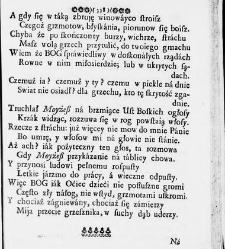 A gdy się w táką zbroię winowáyco stroisz
Czegoż grzmotow, błyskánia, piorunow się boisz.
Chyba że po skończoney burzy, wichrze, stráchu
Masz wolą grzech przypuśćić, do twoiego gmachu
Wiem że BOG spráwiedliwy w doskonáłych rządách
Rowne w nim miłosierdzie; lub w ukrytych są-
dach.
Czemuż ia? czemuż y ty? czemu w piekle ná dnie
Swiat nie osiadł? dla grzechu, kto tę skrytość zga-
dnie.
Truchlał Moyżesz ná brzmiące Ust Boskich ogłosy
Krzák widząc, rozzuwa się w rog powstáią włosy.
Rzecze z stráchu: już więcey nie mow do mnie Pánie
Bo umrę, y włosow mi ná głowie nie stánie.
Aż ach? iák pożyteczny ten głos, ta rozmowa
Gdy Moyżesz przykázanie ná táblicy chowa.
Y przynosi ludowi pełnemu rospusty
Letkie járzmo do prácy, á wieczne odpusty.
Więc BOG iák Oćiec dzieci nie posłuszne gromi
Często zły náłog, nie wstyd, grzmotami uskromi.
Y chociaż zágniewány, chociaż się zámierzy
Mija przecie grzesznika, w suchy dąb uderzy.
Ná